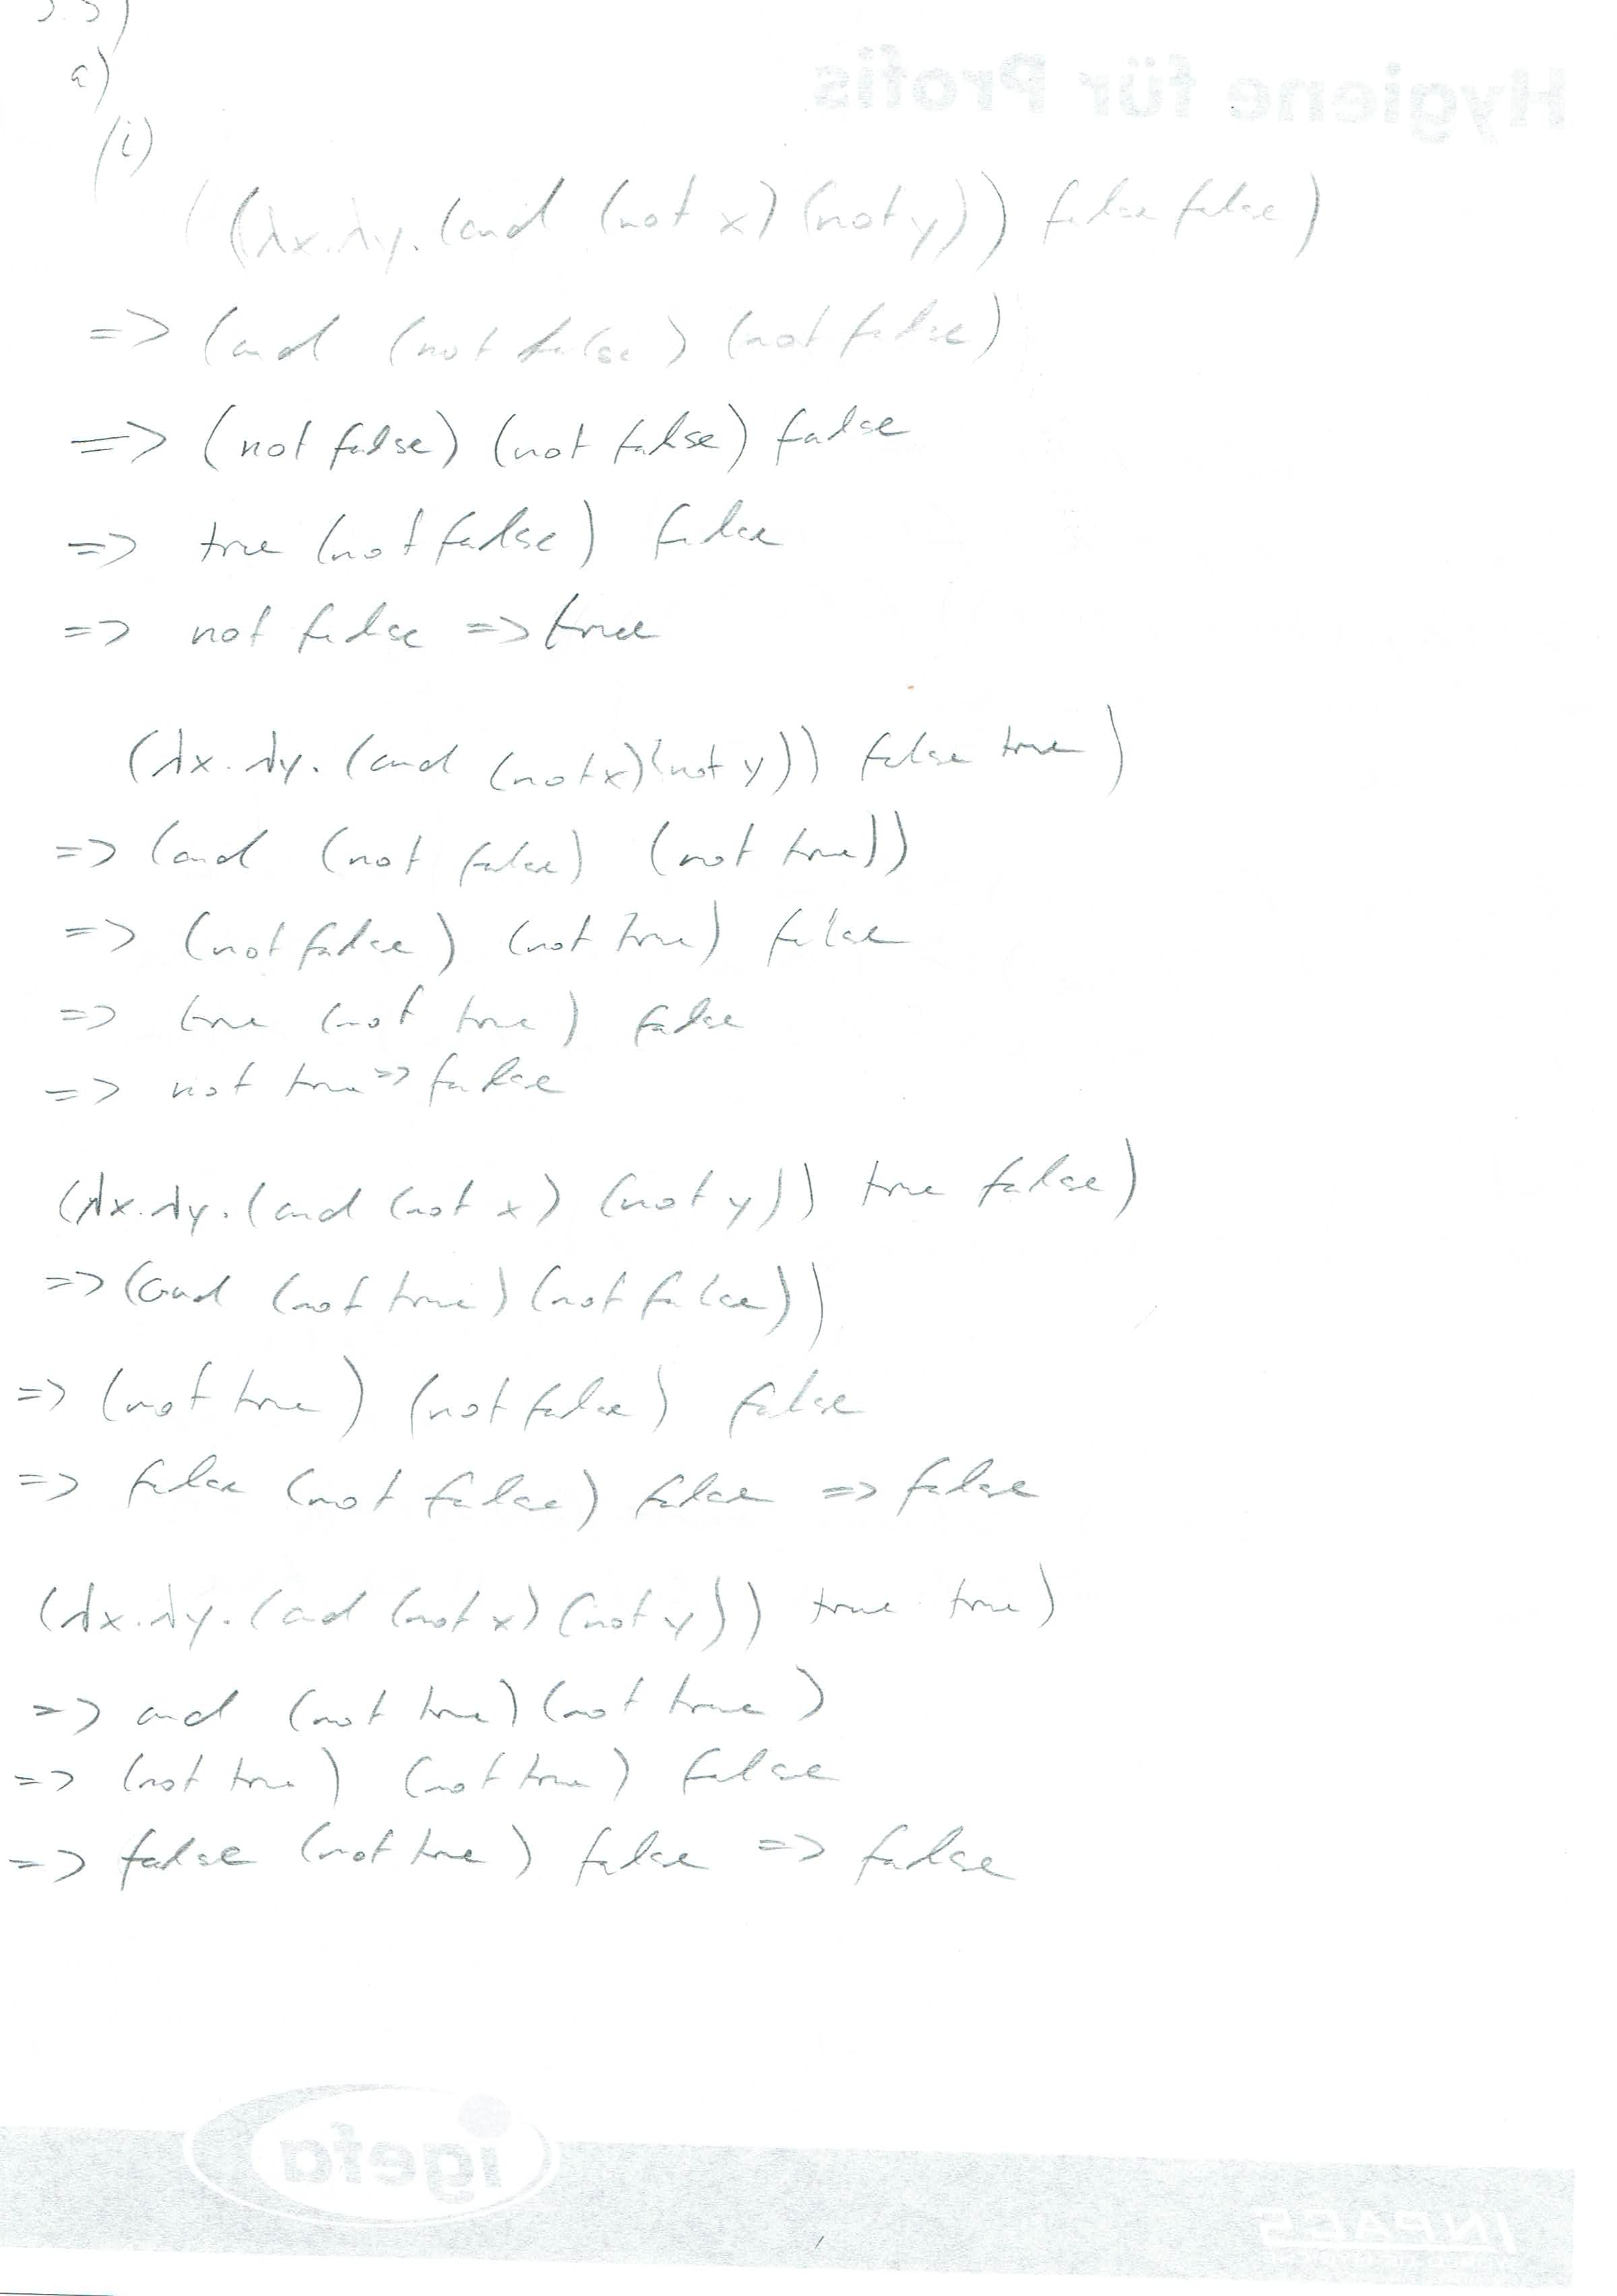 a)
Hygiene für Profis
(i)
((λx.λy.(and (not x) (not y)) false false)
=> (and (not false) (not false)
=> (not false) (not false) false
=> true (not false) false
=> not false => true
(λx.λy.(and (not x)(not y)) false true)
=> (and (not false) (not true))
=> (not false) (not true) false
=> true (not true) false
=> not true => false
(λx.λy.(and (not x) (not y)) true false)
=> (and (not true)(not false))
=> (not true) (not false) false
=> false (not false) false => false
(λx.λy.(and (not x)(not y)) true true)
=> and (not true)(not true)
=> (not true) (not true) false
=> false (not true) false => false
igefa
INPACS